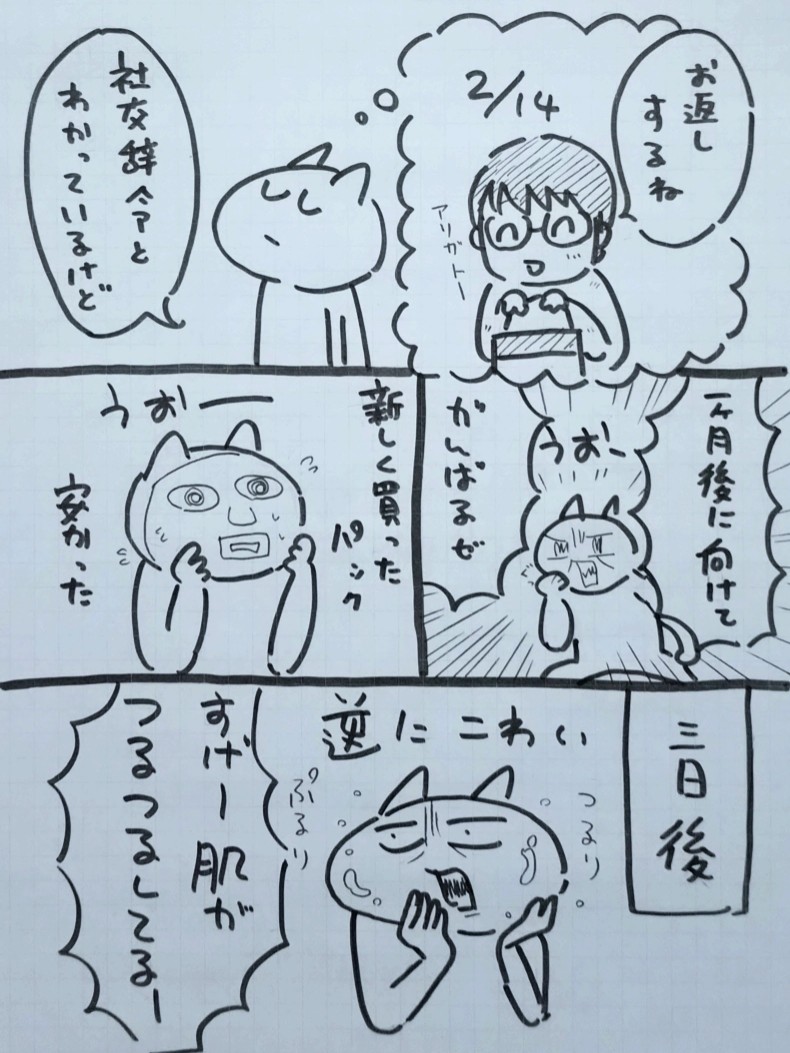 お返し
するね
2/14
アリガトー
社交辞令と
わかっているけど
一ヶ月後に向けて
うおー
がんばるぜ
新しく買った
パック
うおー
安かった
三日後
逆にこわい
つるり
ぷるり
すげー肌が
つるつるしてるー